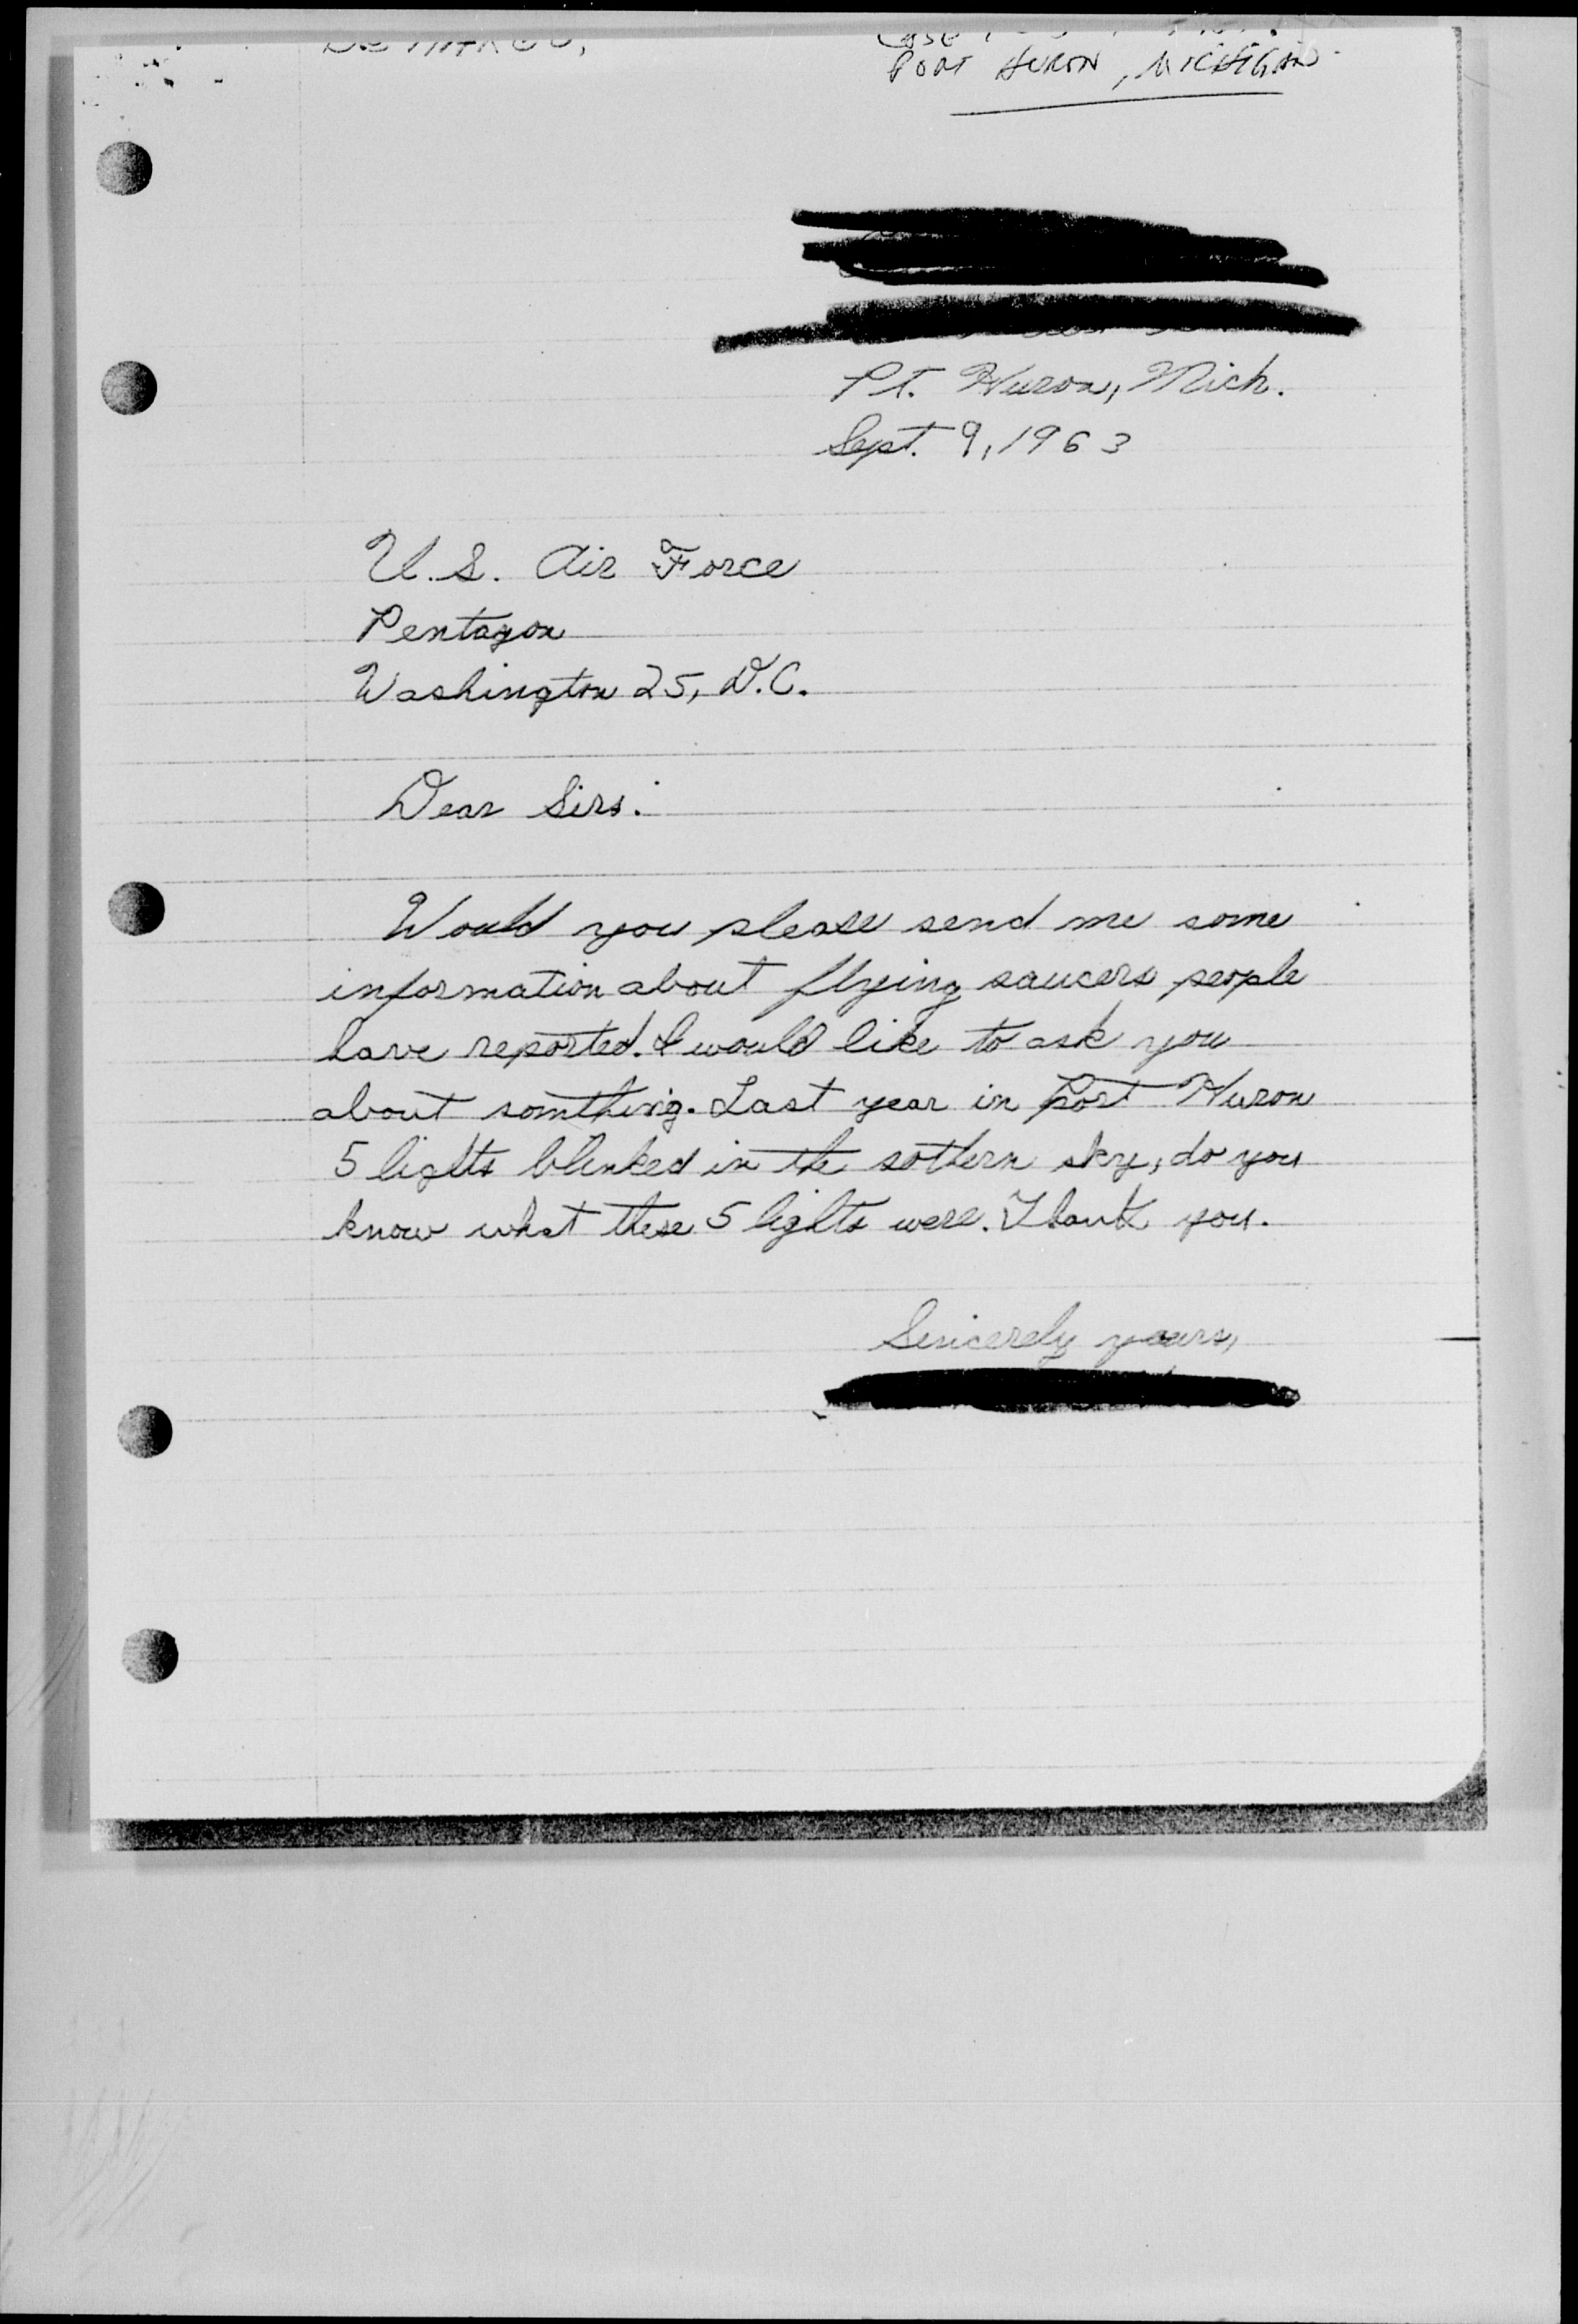 PORT HURON, MICHIGAN
Pt. Huron, Mich.
Sept. 9, 1963
U.S. Air Force
Pentagon
Washington 25, D.C.
Dear Sirs:
Would you please send me some
information about flying saucers people
have reported. I would like to ask you
about somthing. Last year in Port Huron
5 lights blinked in the sothern sky, do you
know what these 5 lights were. Thank you.
Sincerely yours,